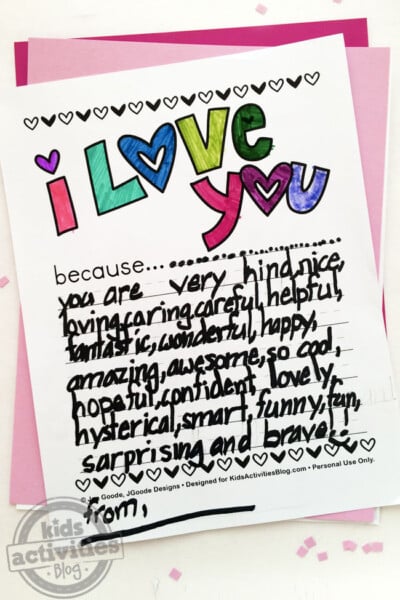 i LOVE
you
because...
you are very hind,nice,
loving,caring,careful,helpful,
fantastic,wonderful,happy,
amazing,awesome,so cool,
hopeful,confident lovely,
hysterical,smart,funny,fun,
sarprising and brave!!
Goode, JGoode Designs • Designed for KidsActivitiesBlog.com • Personal Use Only.
from,
kids
activities
Blog
kids
activities
Blog